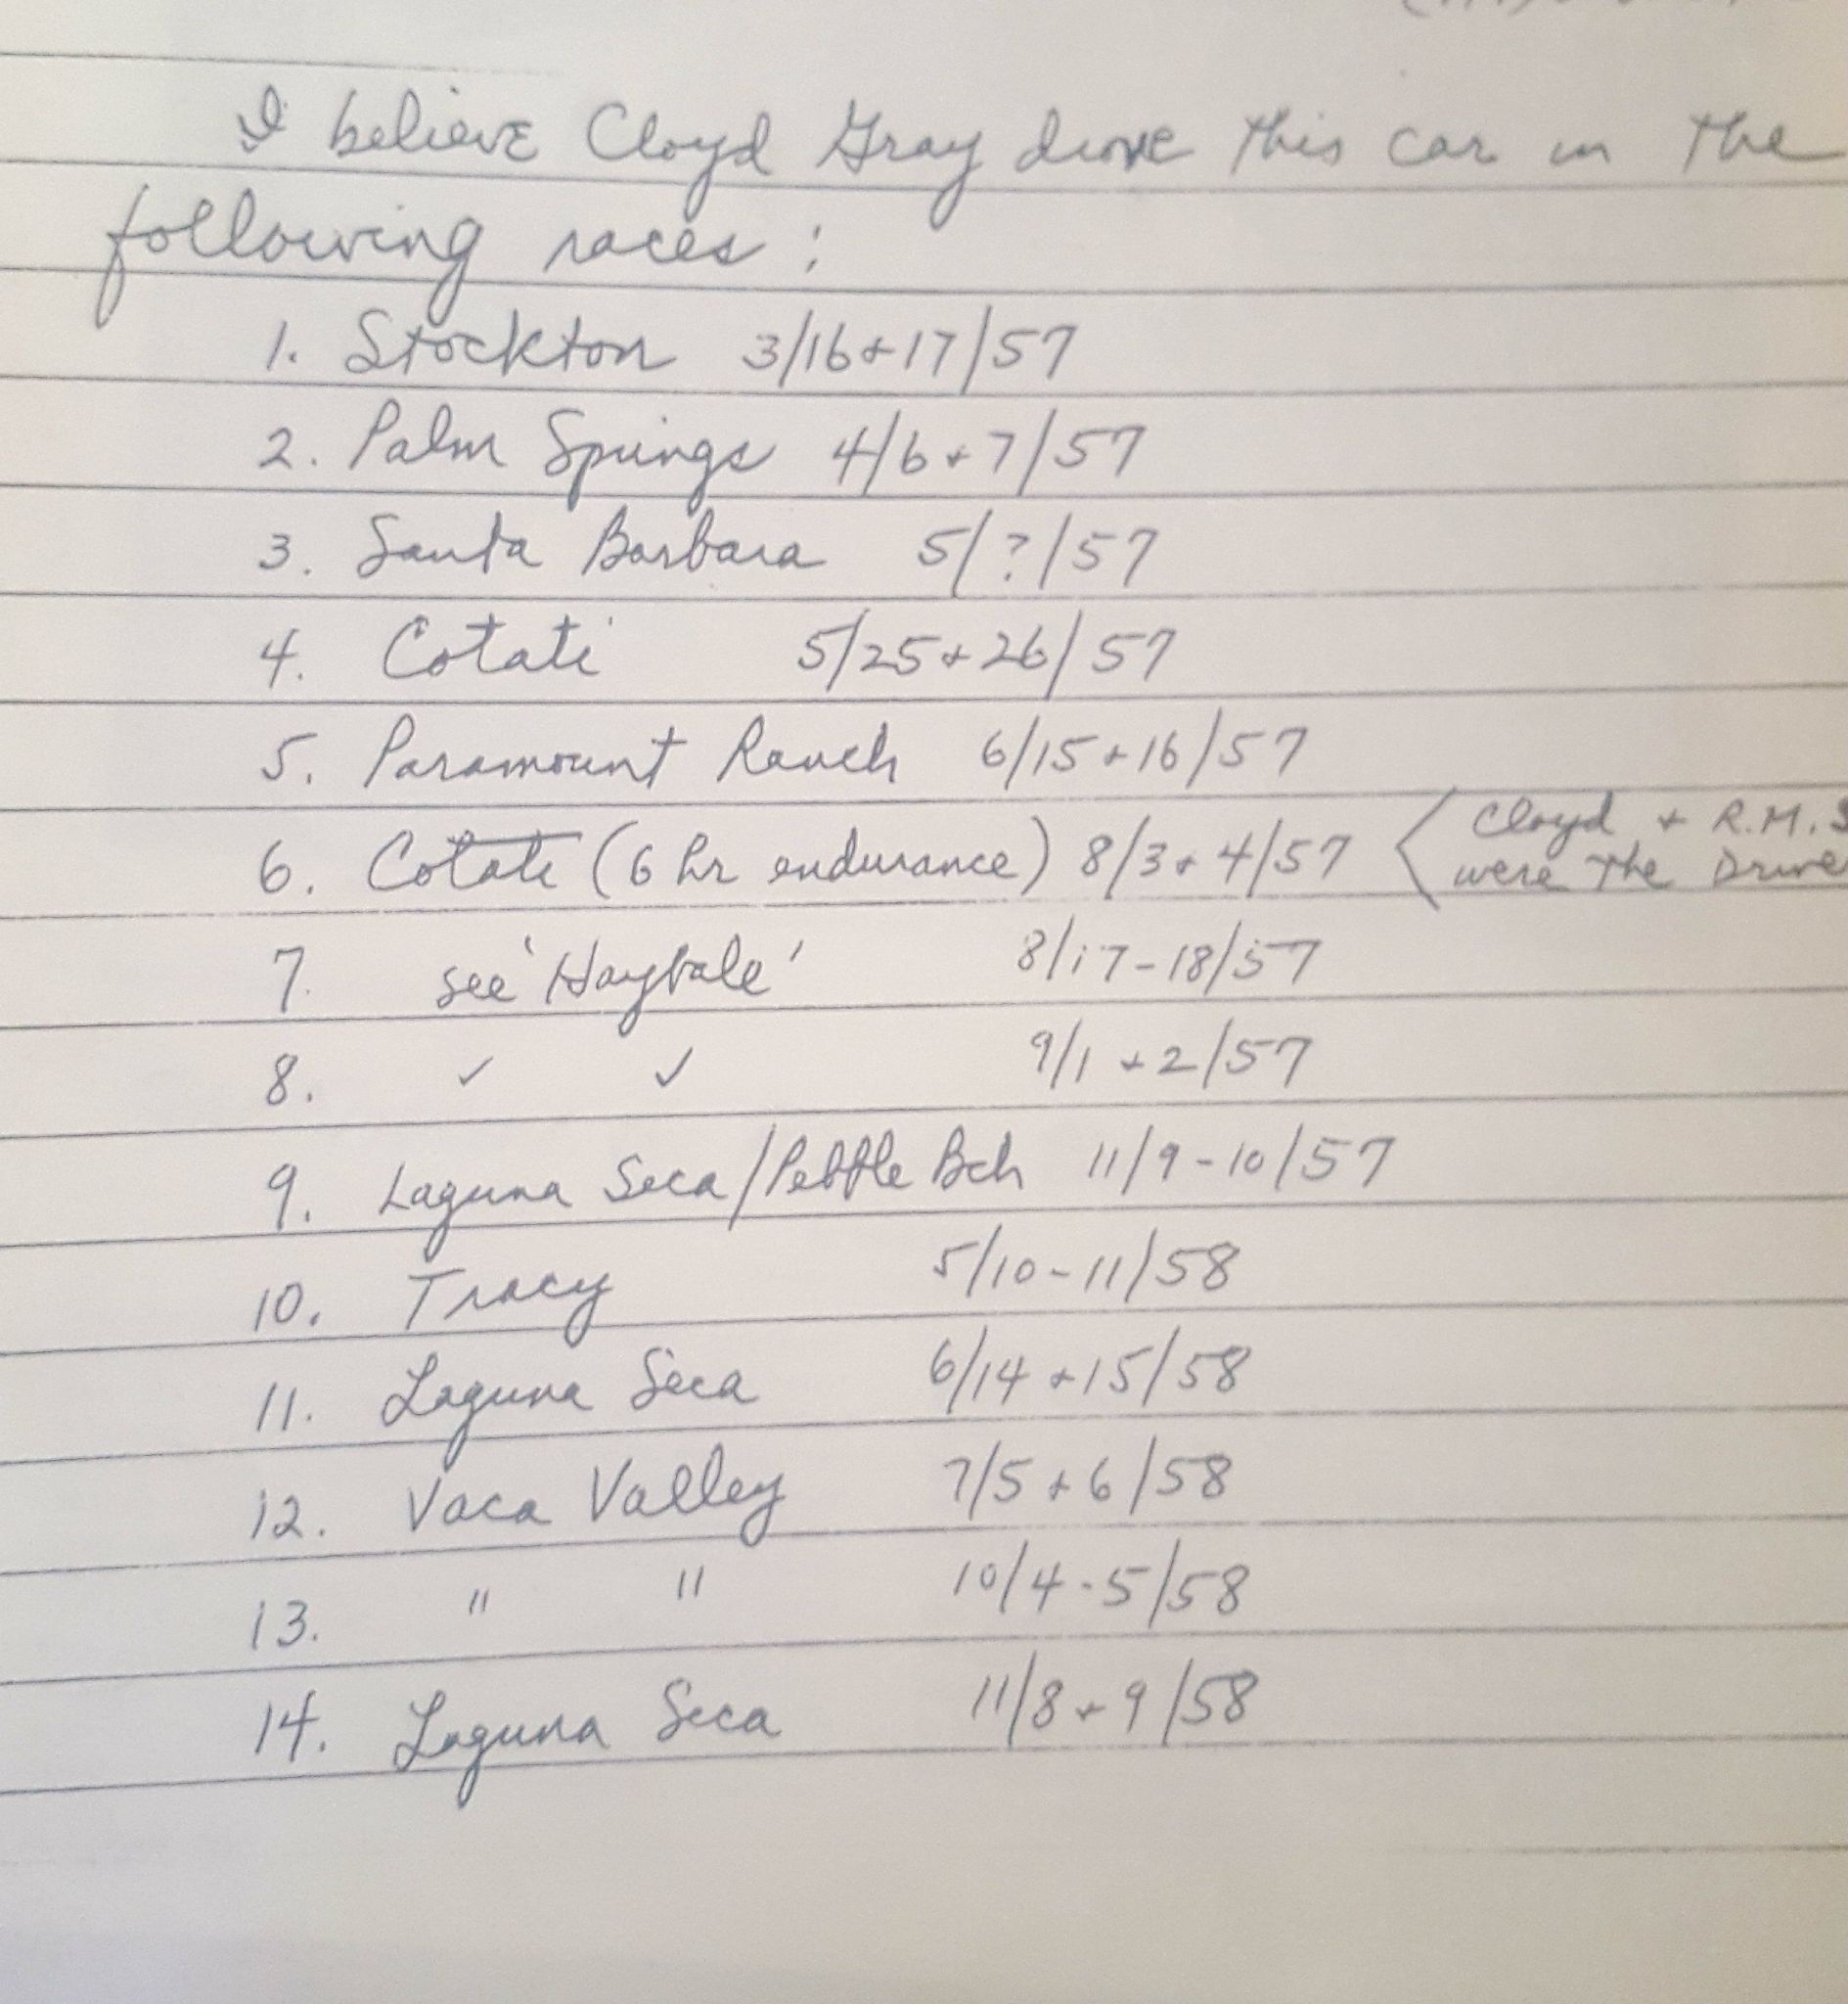 I believe Cloyd Gray drove this car in the
following races:
1. Stockton 3/16+17/57
2. Palm Springs 4/6+7/57
3. Santa Barbara 5/?/57
4. Cotati 5/25+26/57
5. Paramount Ranch 6/15+16/57
6. Cotati (6 hr endurance) 8/3+4/57 < Cloyd + R.M.S
were the Drive
7. see 'Haybale' 8/17-18/57
8. ✓ ✓ 9/1+2/57
9. Laguna Seca/Pebble Bch 11/9-10/57
10. Tracy 5/10-11/58
11. Laguna Seca 6/14+15/58
12. Vaca Valley 7/5+6/58
13. " " 10/4-5/58
14. Laguna Seca 11/8+9/58